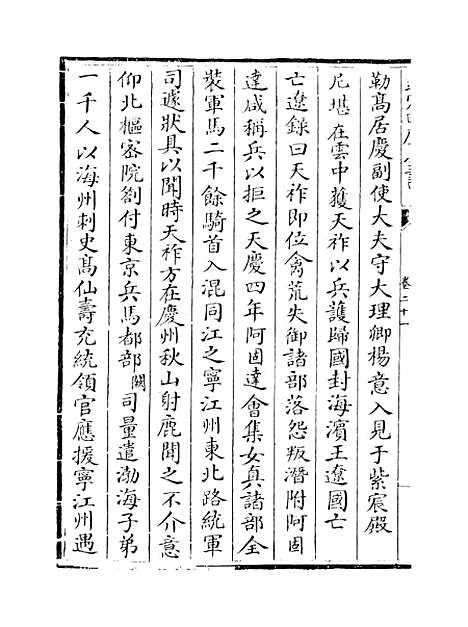 卷二十一
勒高居慶副使大夫守大理卿楊意入見于紫宸殿
尼堪在雲中獲天祚以兵護歸國封海濱王遼國亡
亡遼錄曰天祚即位禽荒失御諸部落怨叛潛附阿固
達咸稱兵以拒之天慶四年阿固達會集女真諸部全
裝軍馬二千餘騎首入混同江之寧江州東北路統軍
司遽狀具以聞時天祚方在慶州秋山射鹿聞之不介意
仰北樞宻院劄付東京兵馬都部闕司量遣渤海子弟
一千人以海州刺史高仙壽充統領官應援寧江州遇